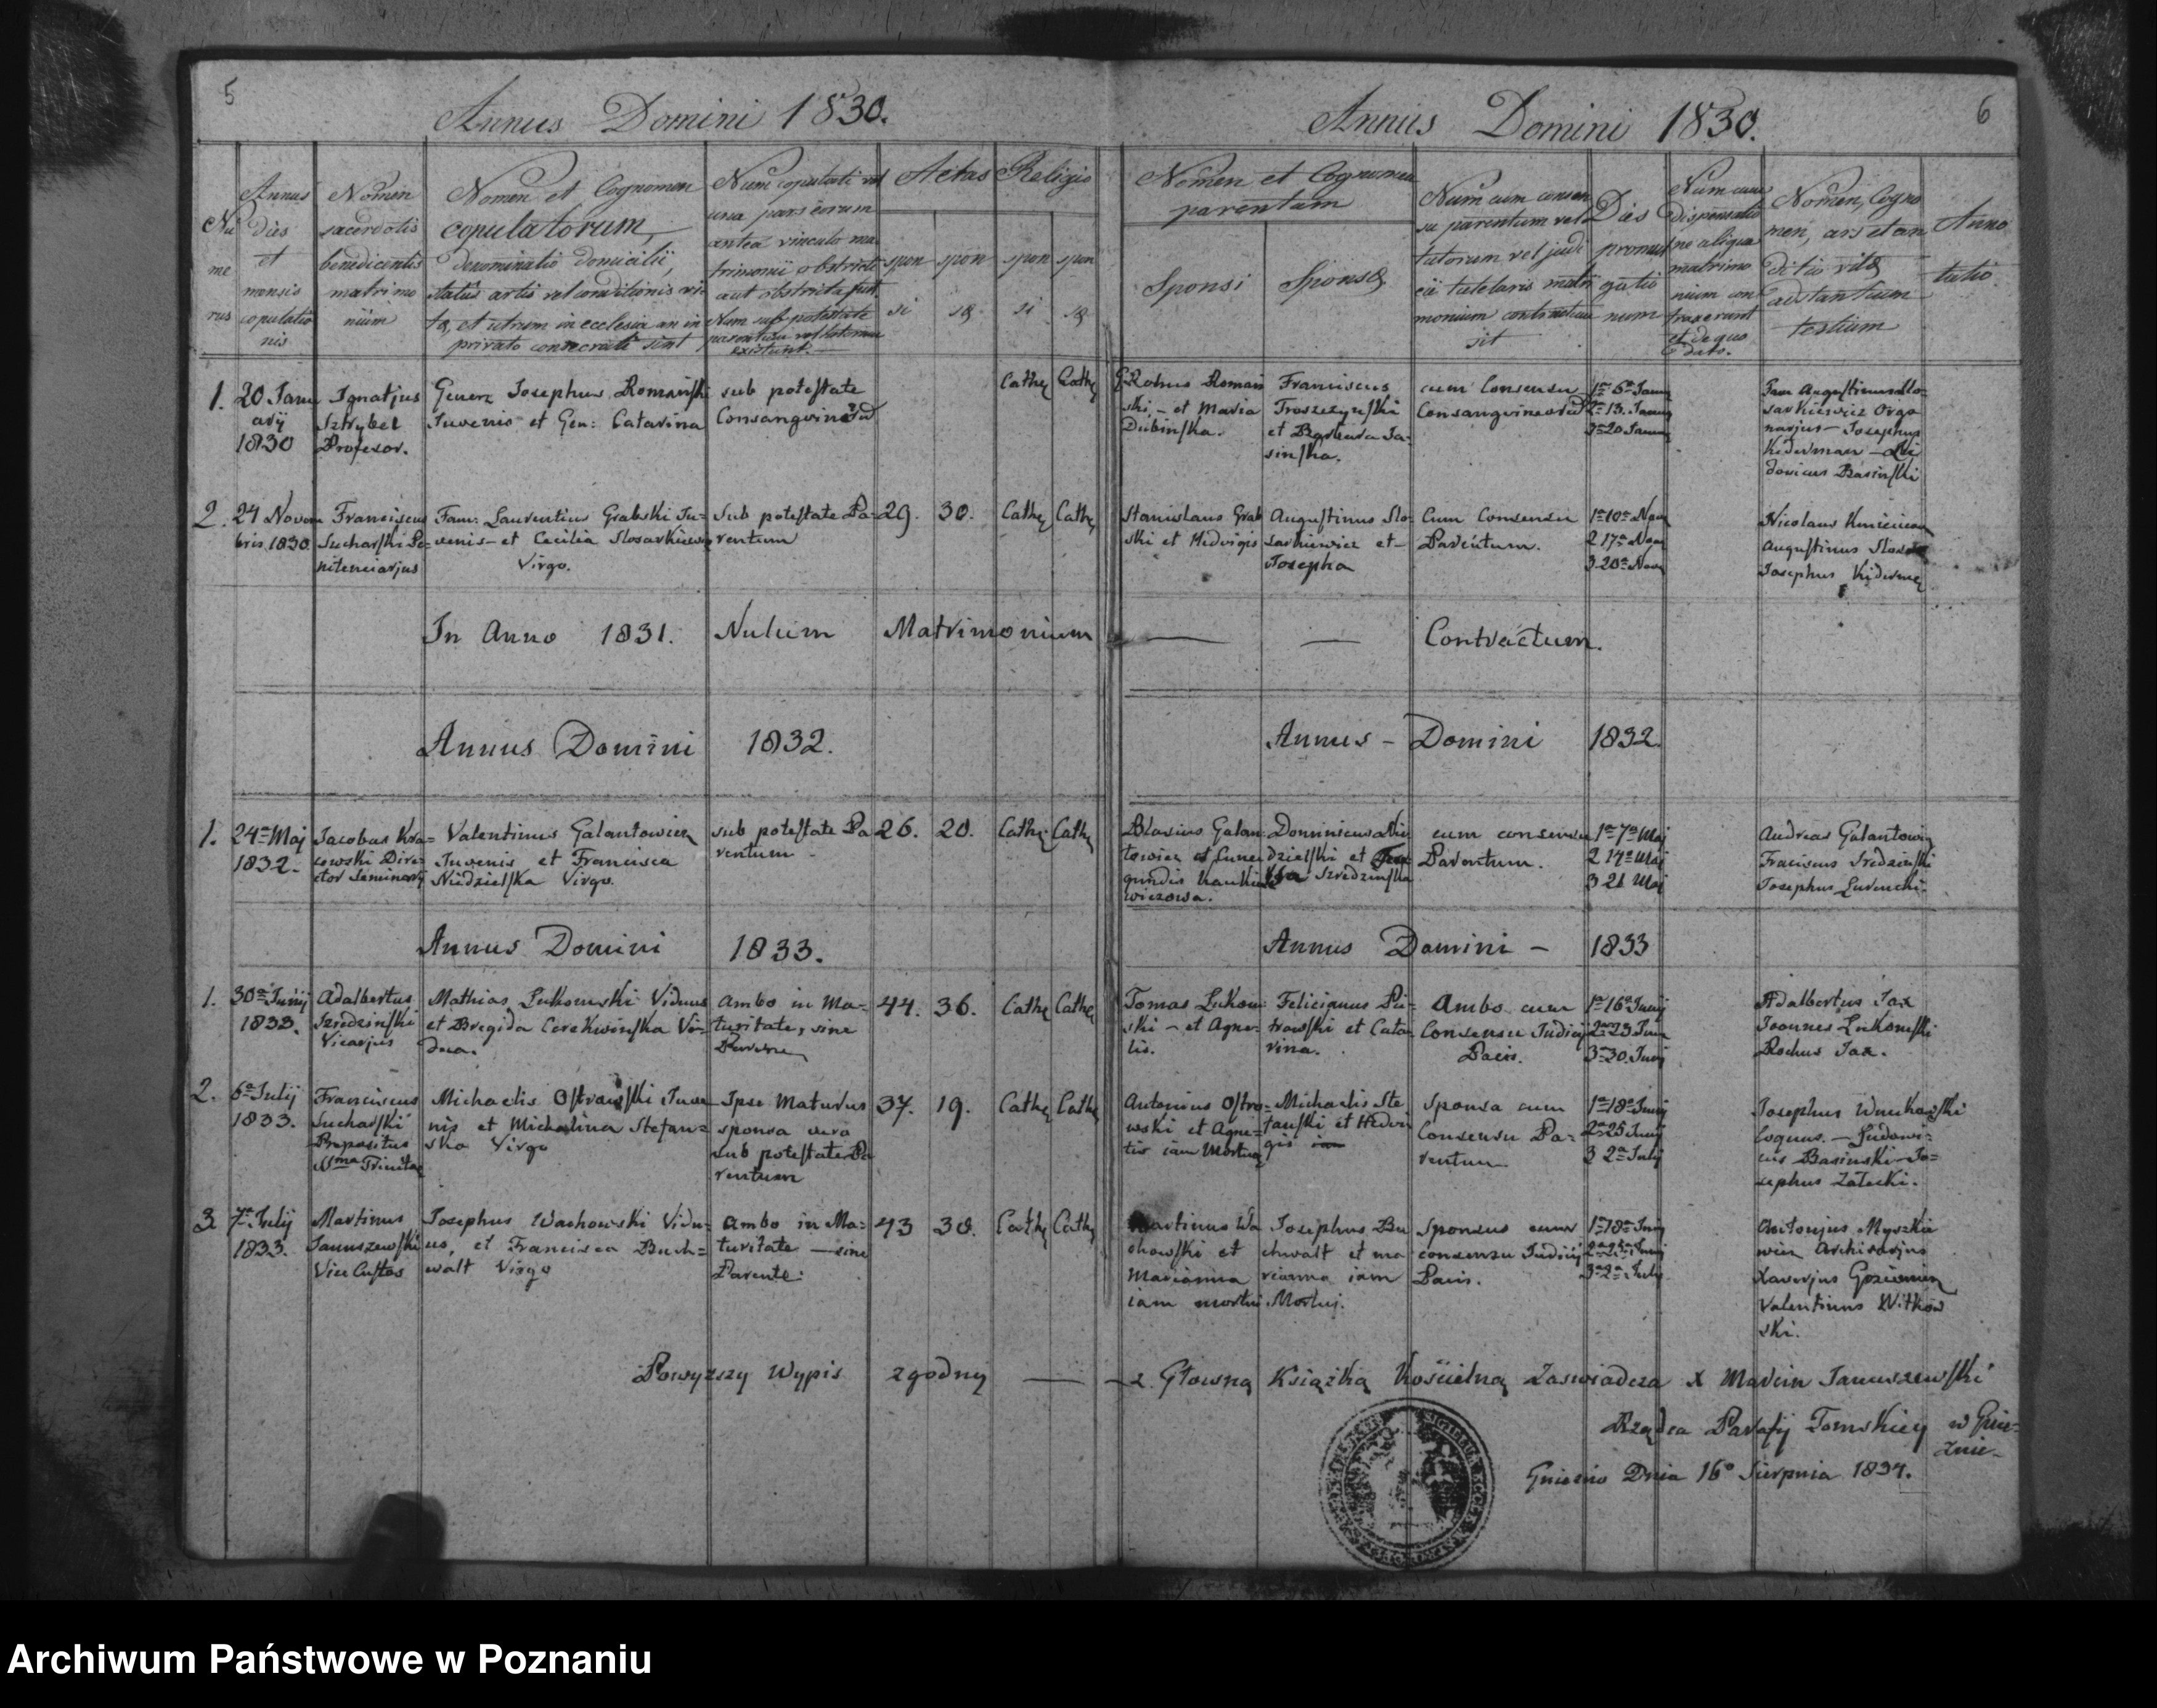 5
Annus Domini 1830.
Annus Domini 1830.
6
Nu
me
rus
Annus
dies
et
mensis
copulatio
nis
Nomen
sacerdotis
benedicentis
matrimo
nium
Nomen et Cognomen
copulatorum,
denominatio domicilii,
status artis vel conditionis vi
tæ, et utrum in ecclesia an in
privato consecrati sint
Num copulati vel
una pars eorum
antea vinculo ma
trimonii obstricti
aut obstricta fuit
Num sub potestate
parentum vel tutorum
existunt.
Aetas
spon
si
spon
sæ
Religio
spon
si
spon
sæ
Nomen et Cognomen
parentum
Sponsi
Sponsæ
Num cum consen
su parentum vel
tutorum vel judi
cii tutelaris matri
monium contractum
sit
Dies
promul
gatio
num
Num cum
dispensatio
ne aliqua
matrimo
nium con
traxerunt
et de quo
dato.
Nomen, Cogno
men, ars et con
ditio vitæ
adstantium
testium
Anno
tatio
1.
20 Janu
arij
1830
Ignatjus
Sztrybel
Profesor.
Gener: Josephus Romaiński
Juvenis et Gen: Catarina
sub potestate
Consangvineoru
Cathę
Cathę
Rohus Romaiń
ski - et Maria
Dubinska.
Franciscus
Troszczyński
et Barbara Ja-
sinska.
cum Consensu
Consangvineoru
1a 6a Janu
2a 13. Janu
3a 20 Janu
Fam Augustinus Slo-
sarkiewicz Orga
narjus - Josephus
Kiderman - Lu
dovicus Basinski
2.
24 Novem
bris 1830
Franciscus
Sucharski Pe-
nitenciarjus
Fam: Laurentius Grabski Ju-
venis - et Cecilia Slosarkiewicz
Virgo.
Sub potestate Pa-
rentum
29.
30.
Cathę
Cathę
Stanislaus Grab
ski et Hedvigis
Augustinus Slo-
sarkiewicz et -
Josepha
Cum Consensu
Parentum.
1a 10a Nov
2 17a Nov
3 20a Nov
Nicolaus
Augustinus
Josephus
In Anno 1831. Nulum Matrimonium — — Contractum.
Annus Domini 1832.
Annus - Domini 1832.
1.
24a Maj
1832.
Jacobus Kra=
kowski Dire=
ctor Seminarij
Valentinus Galantowicz
Juvenis et Francisca
Niedzielska Virgo.
sub potestate Pa
rentum -
26.
20.
Cathę
Cathę
Blasius Galan
towicz et Cune
gundis
wiczowa.
Dominicus Nie
dzielski et
Sredzinska
cum consensu
Parentum.
1a 7a Maj
2 14a Maj
3 21 Maj
Andreas Galantowicz
Franciscus Sredzinski
Josephus
Annus Domini 1833.
Annus Domini - 1833
1.
30a Junij
1833.
Adalbertus
Szredzinski
Vicarjus
Mathias Lukomski Viduus
et Bregida Cerekwinska Vi-
dua.
Ambo in Ma-
turitate, sine
44.
36.
Cathę
Cathę
Tomas Lukom
ski - et Agne-
tis.
Felicianus Pie-
trowski et Cata
rina.
Ambo cum
Consensu Judicij
Pacis.
1a 16a Junij
2a 23 Juni
3a 30. Junij
Adalbertus Jax
Joannes Lukomski
Rochus Jax.
2.
6a Julij
1833.
Franciscus
Sucharski
Prepositus
S.ma Trinitas
Michaelis Ostrowski Juve
nis et Michalina Stefan=
ska Virgo
Ipse Maturus
sponsa vero
sub potestate Pa
rentum
37.
19.
Cathę
Cathę
Antonius Ostro-
wski et Agne-
tis iam Mortuą
Michaelis Ste
fanski et Hedvi
gis
Sponsa cum
Consensu Pa-
rentum
1a 18a Junij
2a 25 Junij
3 2a Julij
Josephus Wnukowski
Coquus. - Ludowi-
cus Basinski - Jo=
sephus Zalecki.
3
7a Julij
1833.
Martinus
Januszewski
Vice Custos
Josephus Wachowski Vidu=
us, et Francisca Buch=
walt Virgo
Ambo in Ma-
turitate - sine
Parente:
43
30.
Cathę
Cathę
Martinus Wa
chowski et
Marianna
iam mortui
Josephus Bu
chwalt et Ma
rianna iam
Mortuj.
Sponsus cum
consensu Judicij
Pacis.
1a 18a Junij
2a 25a Junij
3a 2a Julij
Antonjus Myszkie
wicz Archivarjus
Xaverjus
Valentinus Witkow
ski.
Powyższy Wypis zgodny — z Głowną Książką Kościelną Zaswiadcza X Marcin Januszewski
Rządca Parafij Tomskiey w Gnie-
źnie -
Gniezno Dnia 16o Sierpnia 1834.
Archiwum Państwowe w Poznaniu